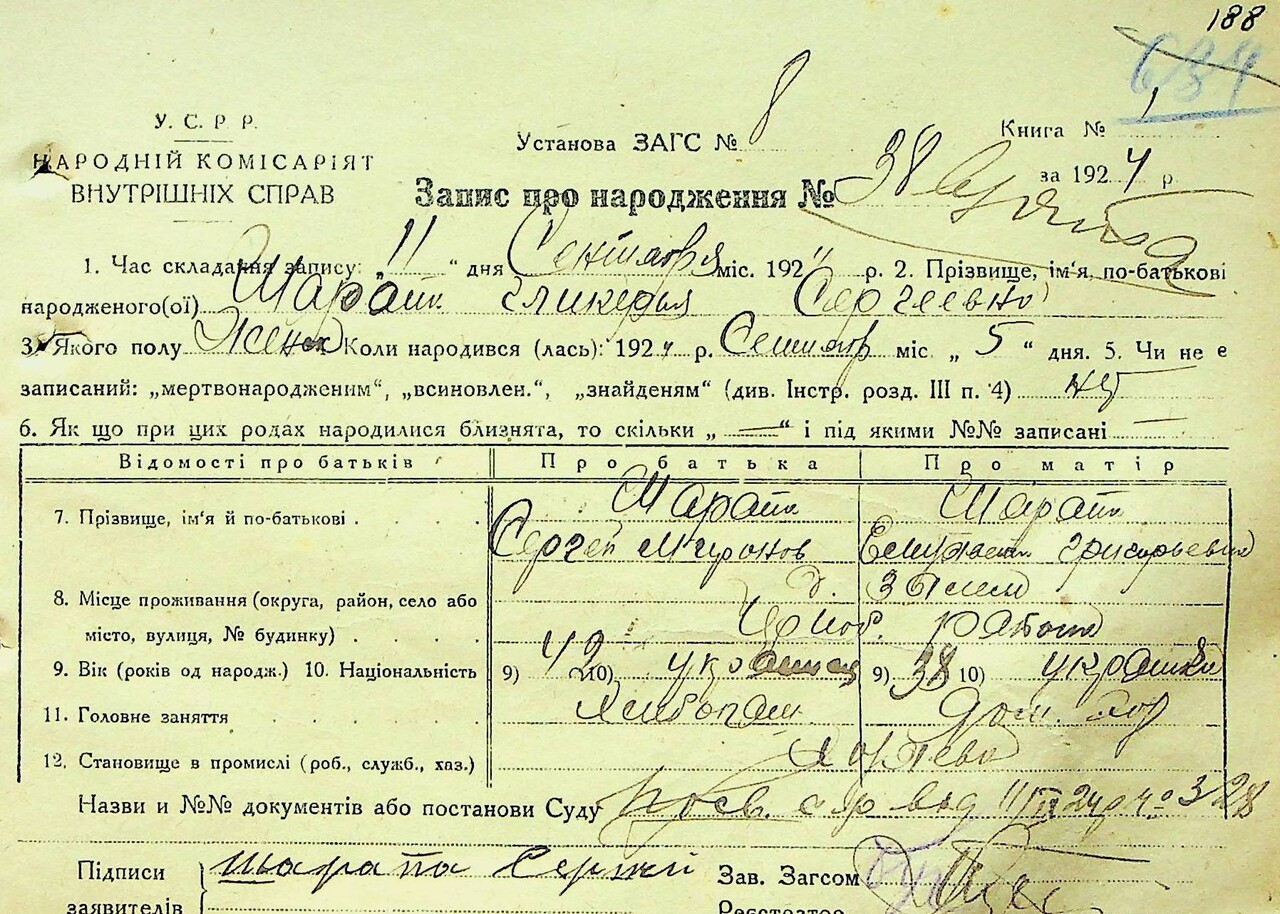 188
634
У. С. Р. Р.
НАРОДНІЙ КОМІСАРІЯТ
ВНУТРІШНІХ СПРАВ
Установа ЗАГС № 8
Книга № 1
за 1924 р.
Запис про народження № 38
1. Час складання запису: „11“ дня Сентября міс. 1924 р. 2. Прізвище, ім‘я, по-батькові
народженого(ої) Шарапа Гликерья Сергеевна
3. Якого полу Женск Коли народився (лась): 1924 р. Сентябр міс. „5“ дня. 5. Чи не є
записаний: „мертвонародженим“, „всиновлен.“, „знайденям“ (див. Інстр. розд. III п. 4)
6. Як що при цих родах народилися близнята, то скільки „—“ і під якими №№ записані —
Відомості про батьків Про батька Про матір
7. Прізвище, ім‘я й по-батькові Шарапа Шарапа
Сергей Миронов Григорьевна
8. Місце проживання (округа, район, село або
місто, вулиця, № будинку)
9. Вік (років од народж.) 10. Національність 9) 42 10) українец 9) 38 10) украинка
11. Головне заняття Хлібопаш. Дом. хоз
12. Становище в промислі (роб., служб., хаз.)
Назви и №№ документів або постанови Суду Посв. с/р від 11/IX 24 р. № 328
Підписи шарапа Сергей Зав. Загсом
заявителів Реєстратор